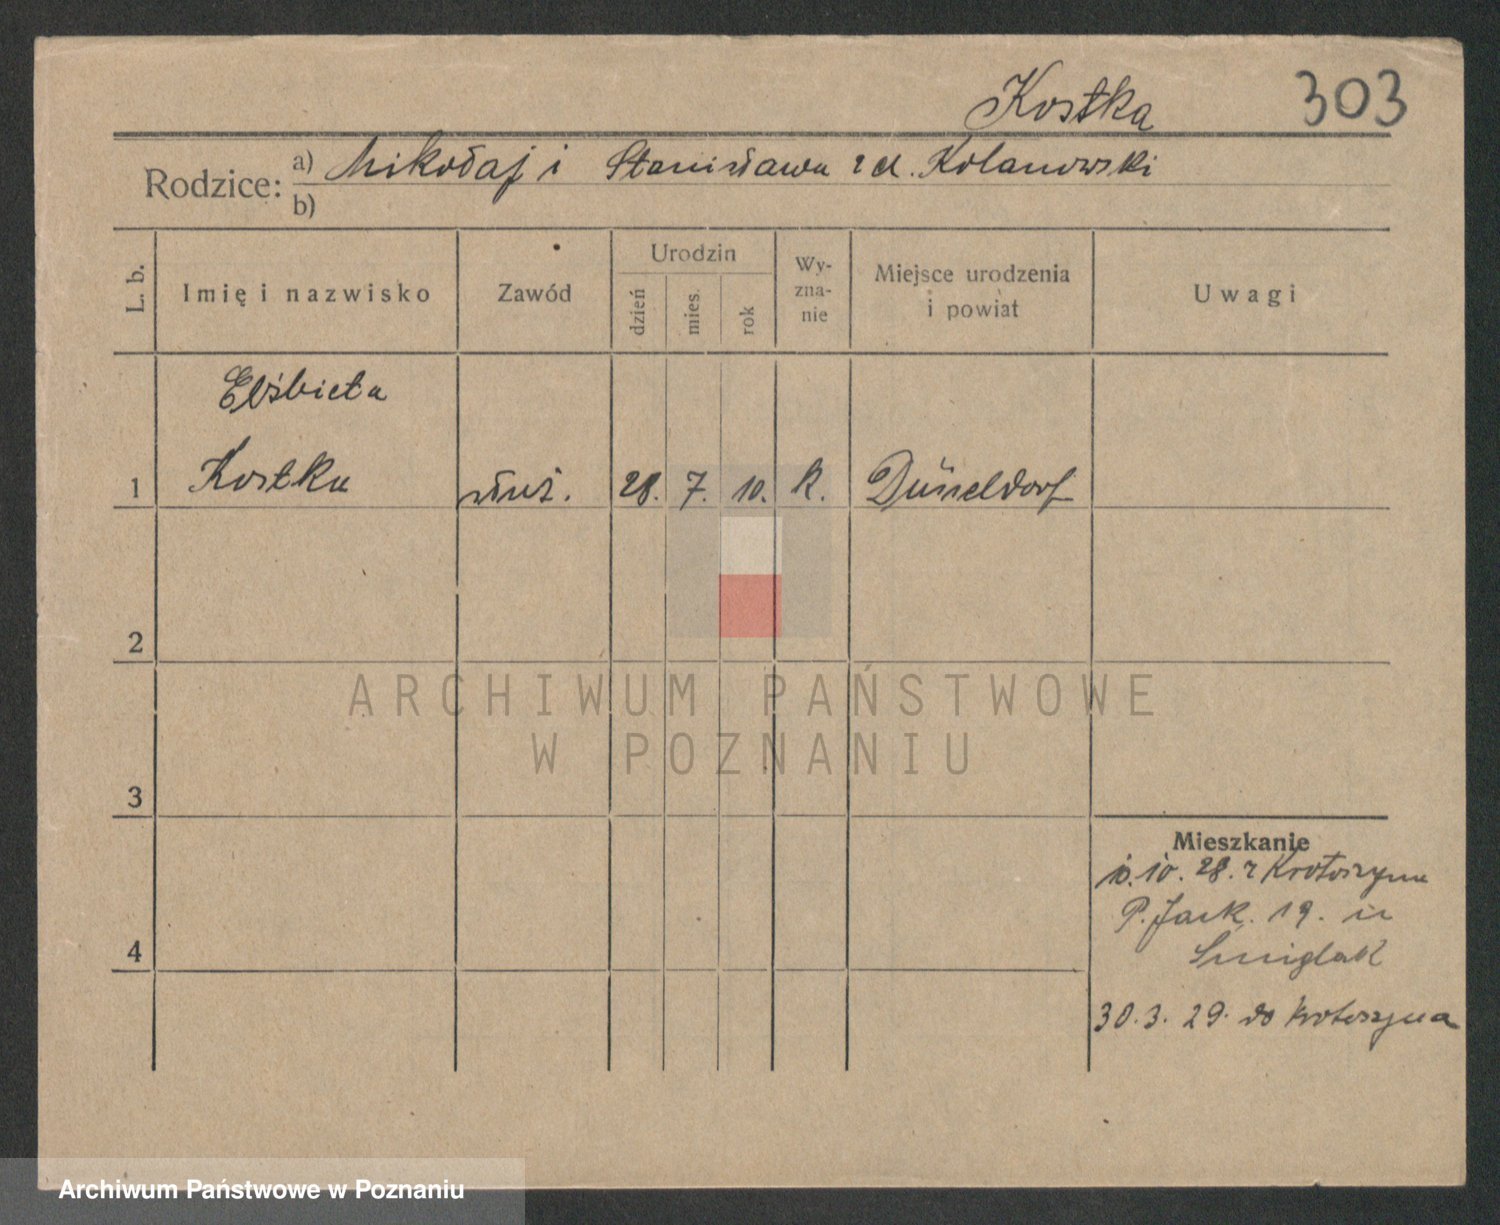 Kostka 303
Rodzice: a) Mikołaj i Stanisława z d. Kolanowski
b)
L. b. Imię i nazwisko Zawód Urodzin dzień mies. rok Wy-zna-nie Miejsce urodzenia i powiat Uwagi
Elżbieta
1 Kostka służ. 28. 7. 10. k. Düsseldorf
2
ARCHIWUM PAŃSTWOWE
W POZNANIU
3
Mieszkanie
10. 10. 28. z Krotoszyna
P. Jack. 19. u
4 Śmiglak
30. 3. 29. do Krotoszyna
Archiwum Państwowe w Poznaniu